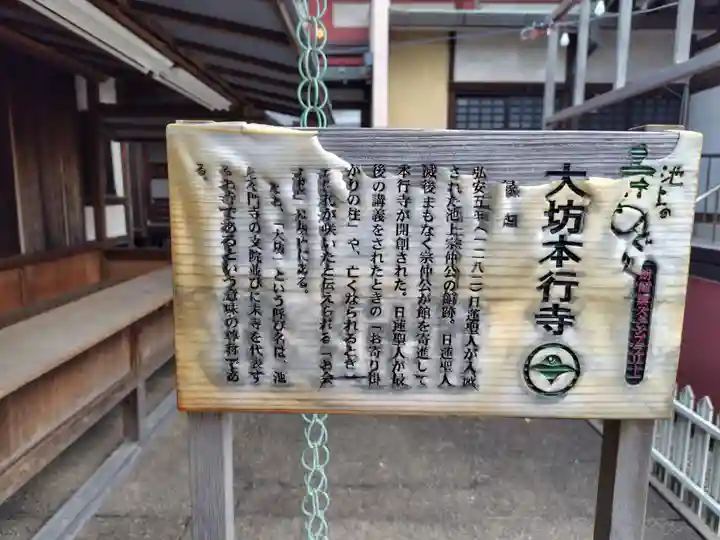 池上の
大坊本行寺
縁起
弘安五年(一二八二)日蓮聖人が入滅
された池上宗仲公の館跡。日蓮聖人
滅後まもなく宗仲公が館を寄進して
本行寺が開創された。日蓮聖人が最
後の講義をされたときの「お寄り掛
かりの柱」や、亡くなられるとき
れが咲いたと伝えられる「お会
にある。
「大坊」という呼び名は、池
上本門寺の支院並びに末寺を代表す
るお寺であるという意味の尊称であ
る。